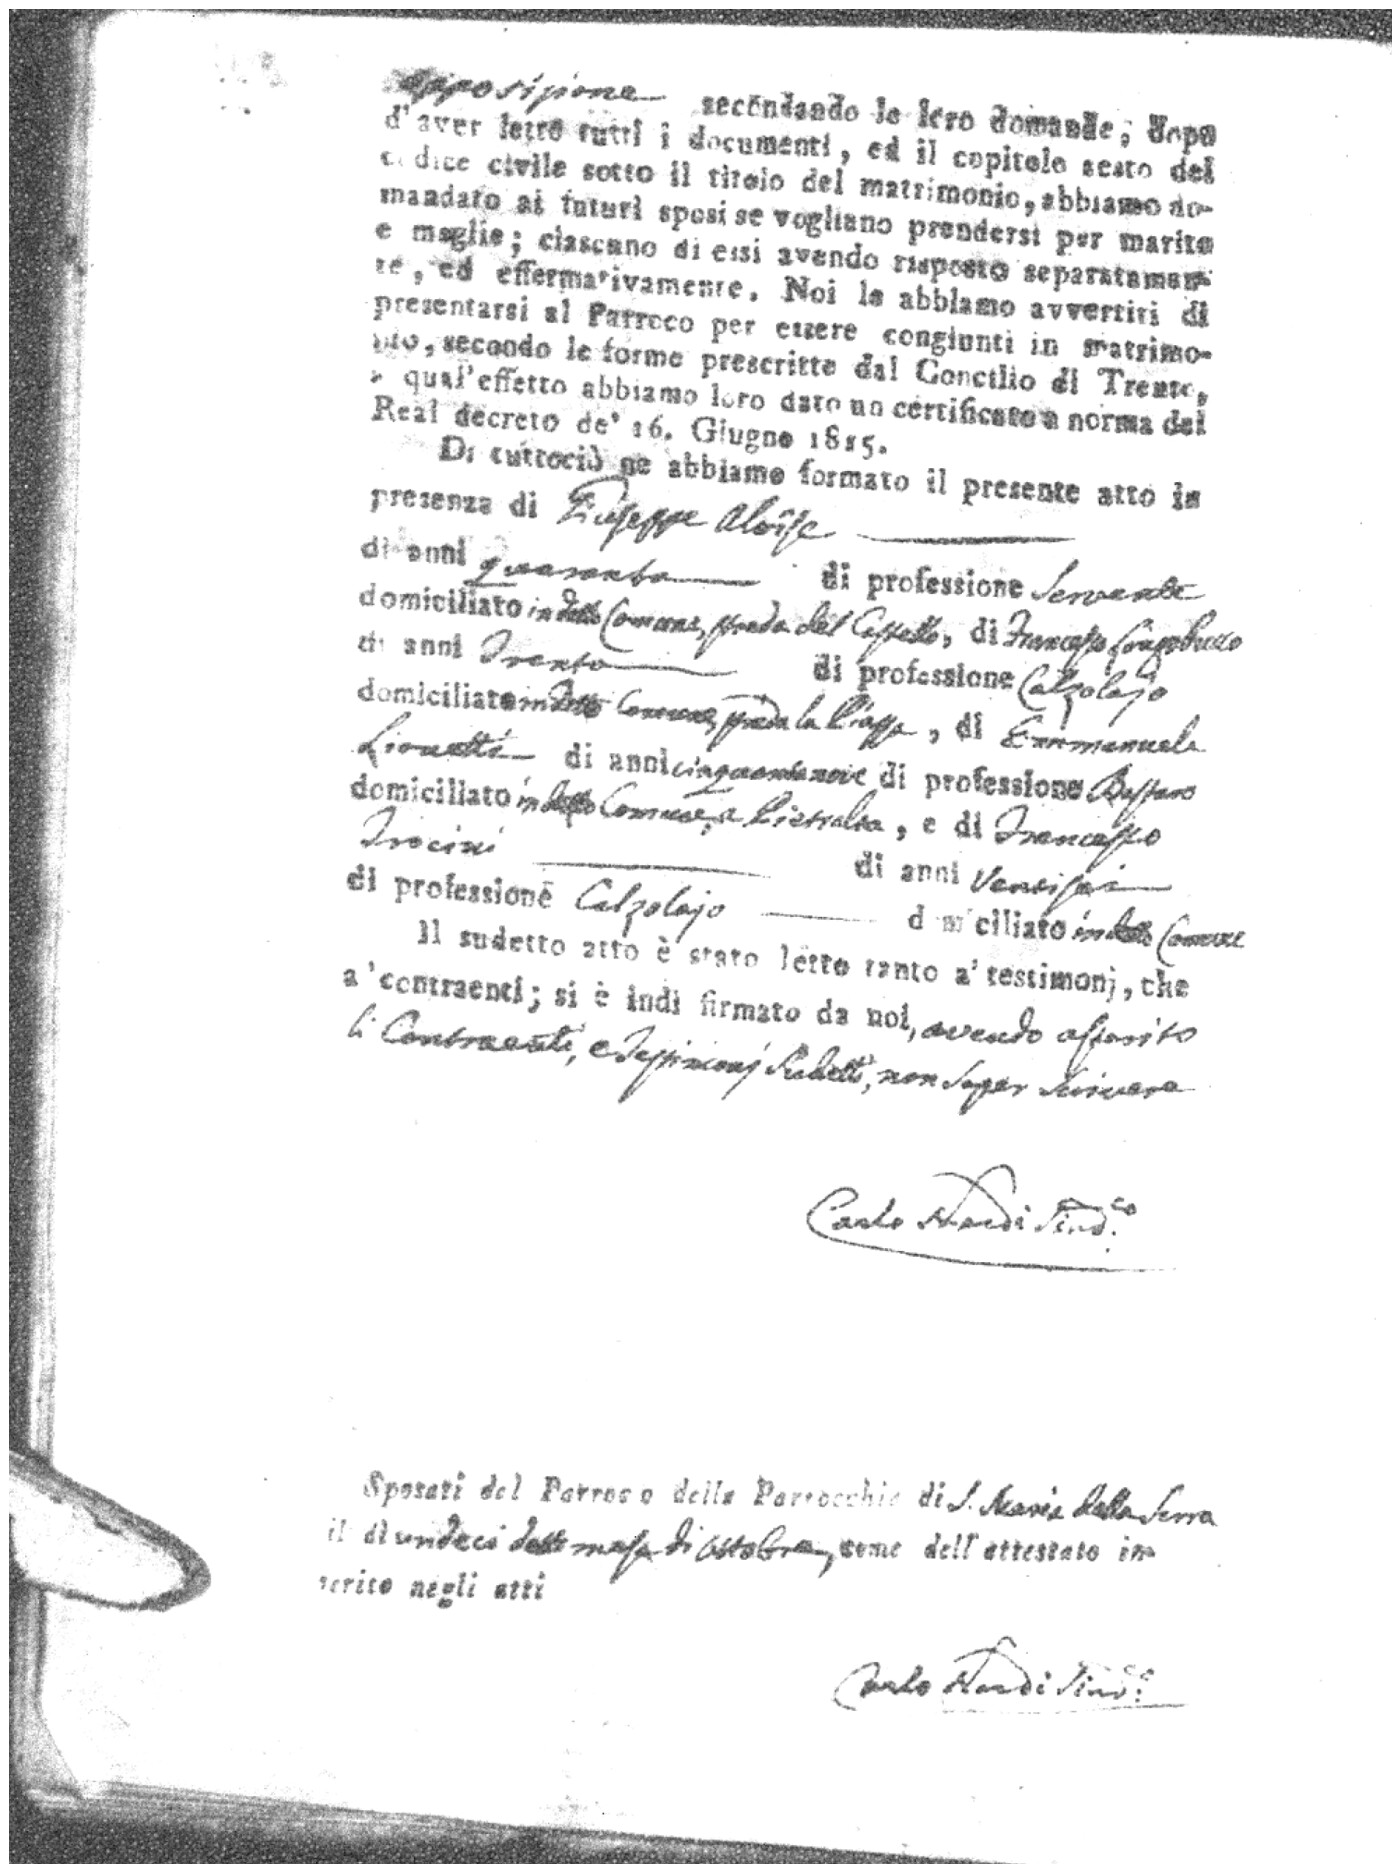 opposizione secondando le loro domande; dopo
d'aver letto tutti i documenti, ed il capitolo sesto del
codice civile sotto il titolo del matrimonio, abbiamo do-
mandato ai futuri sposi se vogliano prendersi per marito
e moglie; ciascuno di essi avendo risposto separatamen-
te, ed effermativamente. Noi le abbiamo avvertiti di
presentarsi al Parroco per essere congiunti in matrimo-
nio, secondo le forme prescritte dal Concilio di Trento,
a qual'effetto abbiamo loro dato un certificato a norma del
Real decreto de' 16. Giugno 1815.
Di tuttociò ne abbiamo formato il presente atto in
presenza di Giuseppe Aloise
di anni quaranta di professione Servente
domiciliato in detto Comune, strada del Castello, di Francesco Longobucco
di anni Trenta di professione Calzolajo
domiciliato in detto Comune, strada la Piazza, di Emmanuele
Lionetti di anni cinquantanove di professione Bastaro
domiciliato in detto Comune, a Pietralta, e di Francesco
Trocini di anni Ventisei
di professione Calzolajo domiciliato in detto Comune
Il sudetto atto è stato letto tanto a' testimonj, che
a' contraenti; si è indi firmato da noi, avendo asserito
li Contraenti, e Testimonj sudetti, non saper scrivere
Carlo Nardi Sind.co
Sposati del Parroco della Parrocchia di S. Maria della Serra
il dì undeci detto mese di Ottobre, come dell'attestato in-
serito negli atti
Carlo Nardi Sind.co